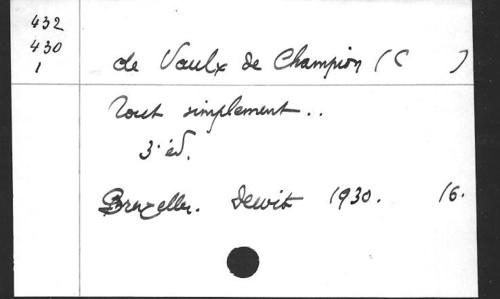 432
430
1
de Vaulx de Champion (C )
Tout simplement..
3. éd.
Bruxelles. Dewit 1930. 16.